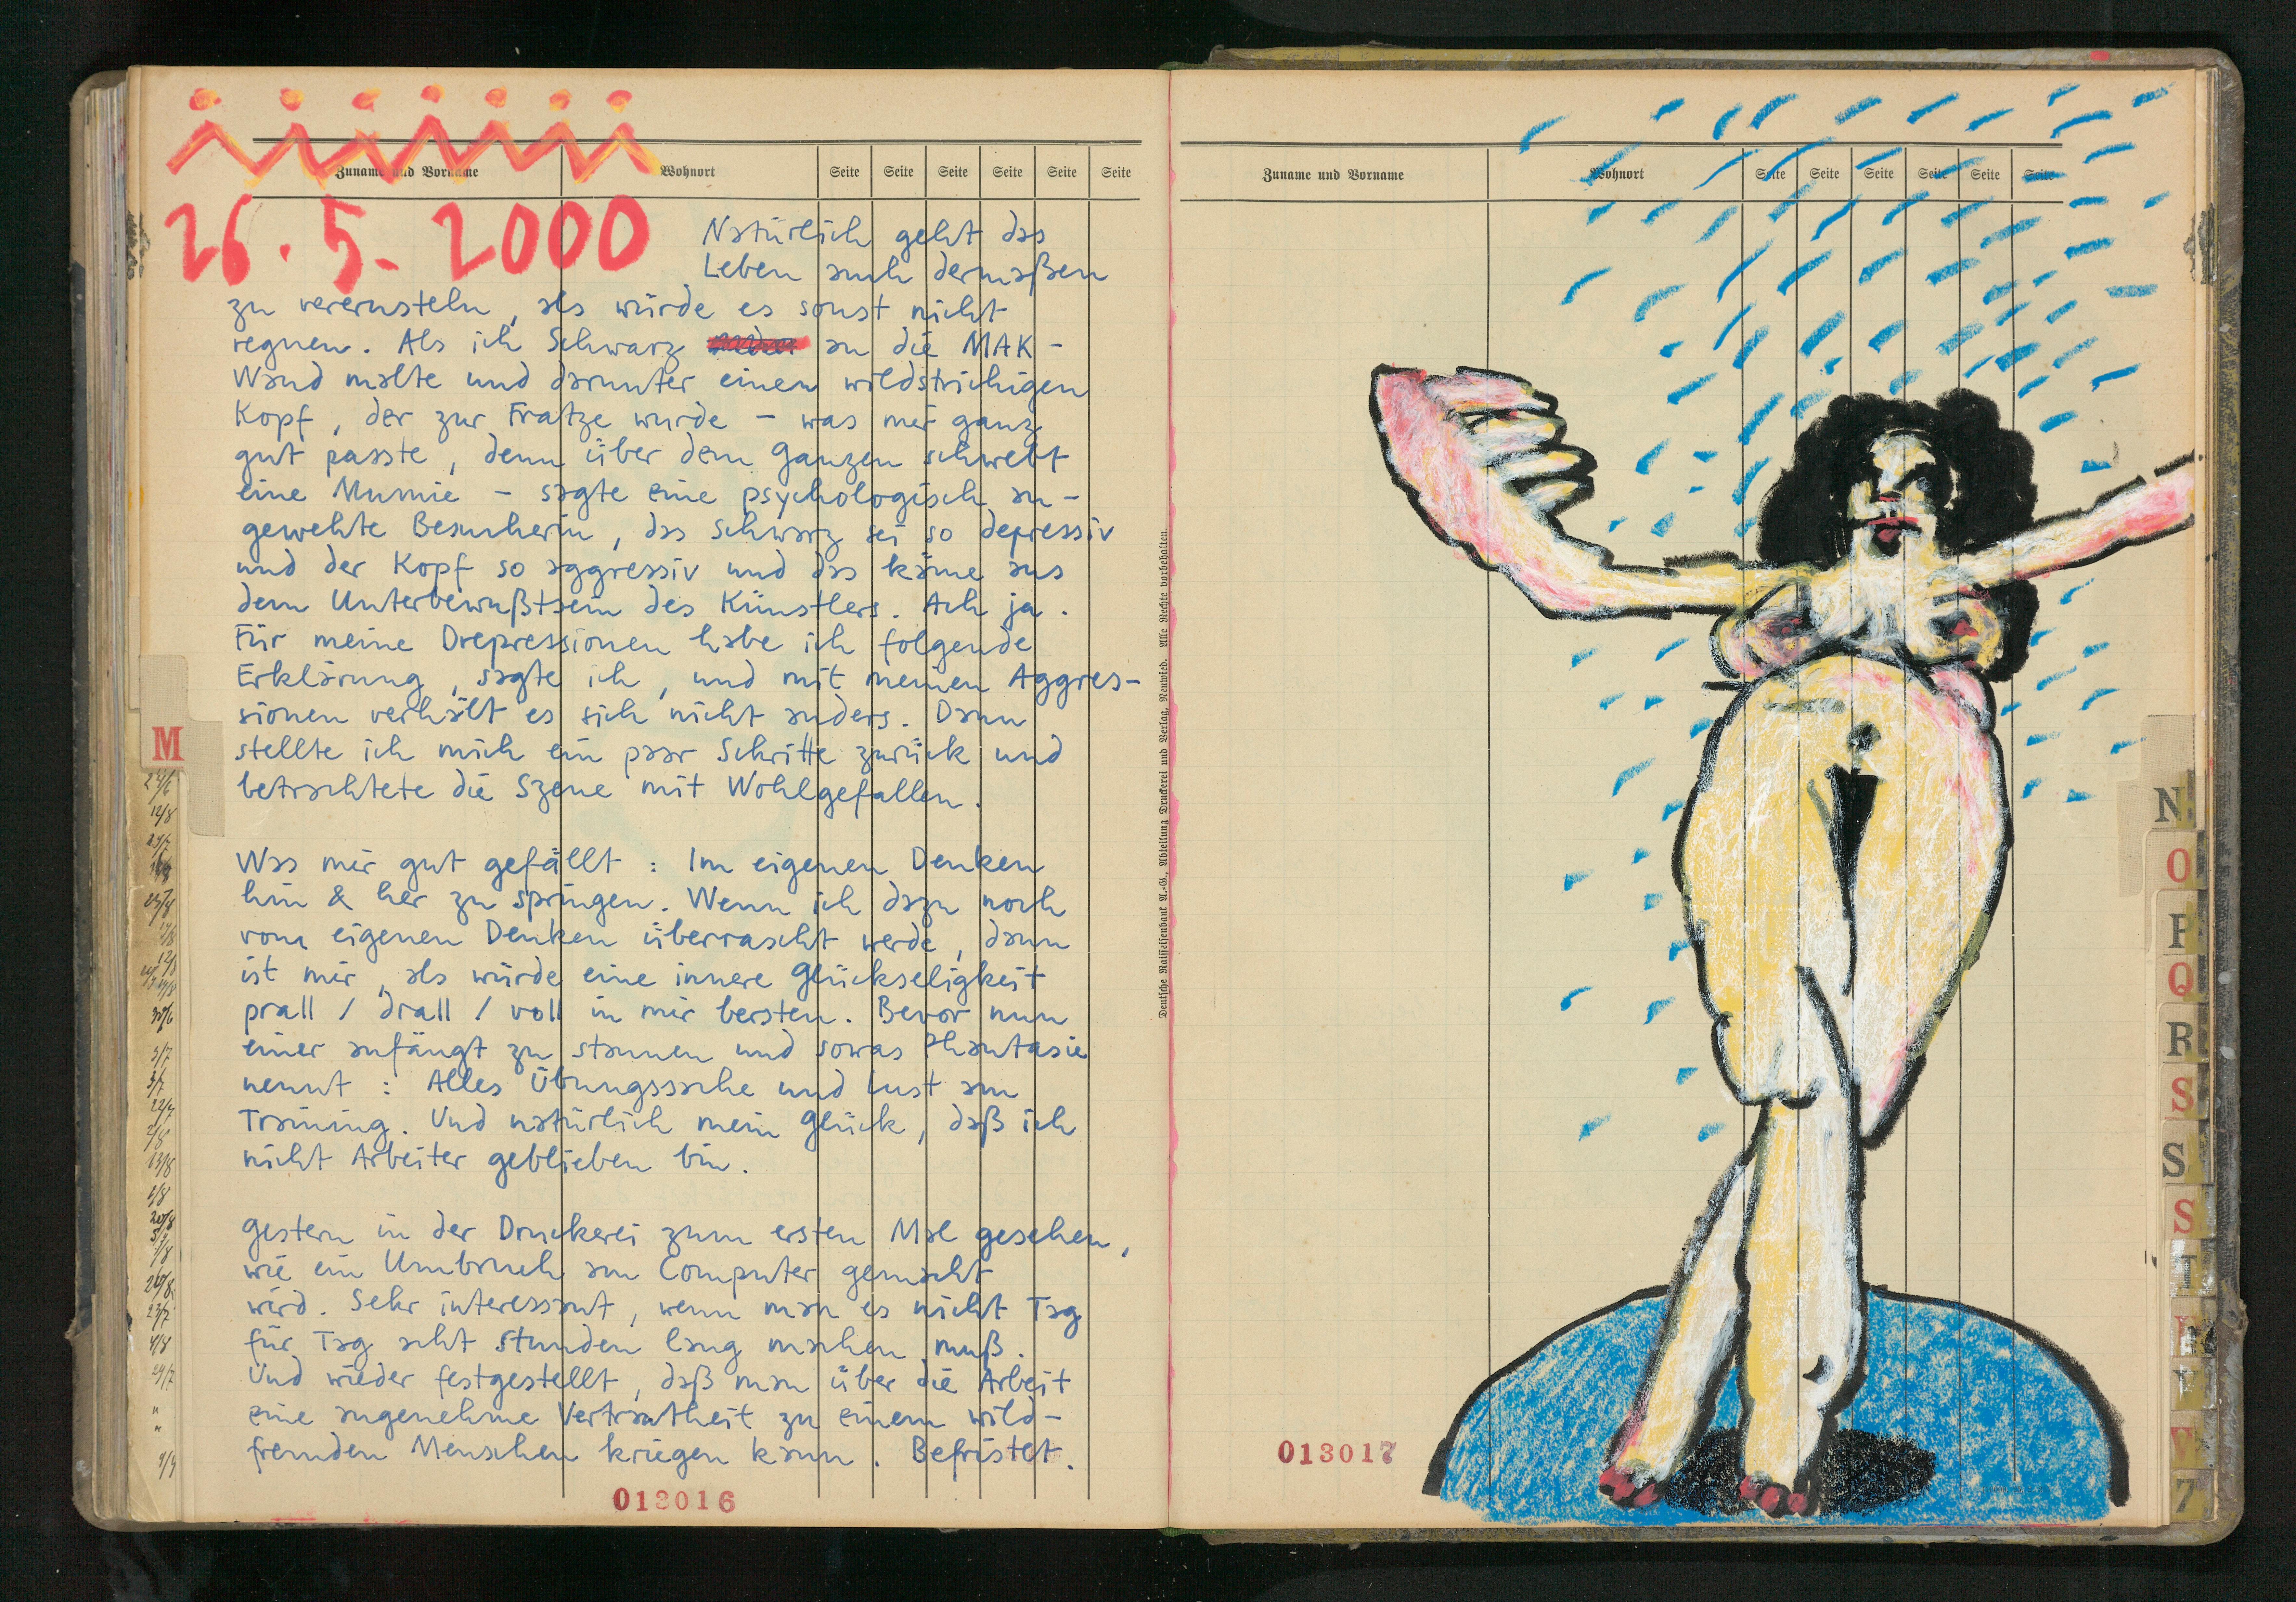 Zuname und Vorname Wohnort Seite Seite Seite Seite Seite Seite
26.5.2000
Natürlich geht das
Leben auch dermaßen
zu verernsteln, als würde es sonst nicht
regnen. Als ich Schwarz an die MAK-
Wand malte und darunter einen wildstrichigen
Kopf, der zur Fratze wurde – was mir ganz
gut passte, denn über dem Ganzen schwebt
eine Mumie – sagte eine psychologisch an-
gewehte Besucherin, das Schwarz sei so depressiv
und der Kopf so aggressiv und das käme aus
dem Unterbewußtsein des Künstlers. Ach ja.
Für meine Drepressionen habe ich folgende
Erklärung, sagte ich, und mit meinen Aggres-
sionen verhält es sich nicht anders. Dann
stellte ich mich ein paar Schritte zurück und
betrachtete die Szene mit Wohlgefallen.
Was mir gut gefällt: Im eigenen Denken
hin & her zu springen. Wenn ich dazu noch
vom eigenen Denken überrascht werde, dann
ist mir, als würde eine innere Glückseligkeit
prall / drall / voll in mir bersten. Bevor nun
einer anfängt zu staunen und sowas Phantasie
nennt: Alles Übungssache und Lust am
Training. Und natürlich mein Glück, daß ich
nicht Arbeiter geblieben bin.
Gestern in der Druckerei zum ersten Mal gesehen,
wie ein Umbruch am Computer gemacht
wird. Sehr interessant, wenn man es nicht Tag
für Tag acht Stunden lang machen muß.
Und wieder festgestellt, daß man über die Arbeit
eine angenehme Vertrautheit zu einem wild-
fremden Menschen kriegen kann. Befristet.
013016
M
Deutsche Raiffeisenbank A.-G., Abteilung Druckerei und Verlag, Neuwied. Alle Rechte vorbehalten.
Zuname und Vorname Wohnort Seite Seite Seite Seite Seite Seite
013017
N
O
P
Q
R
S
S
S